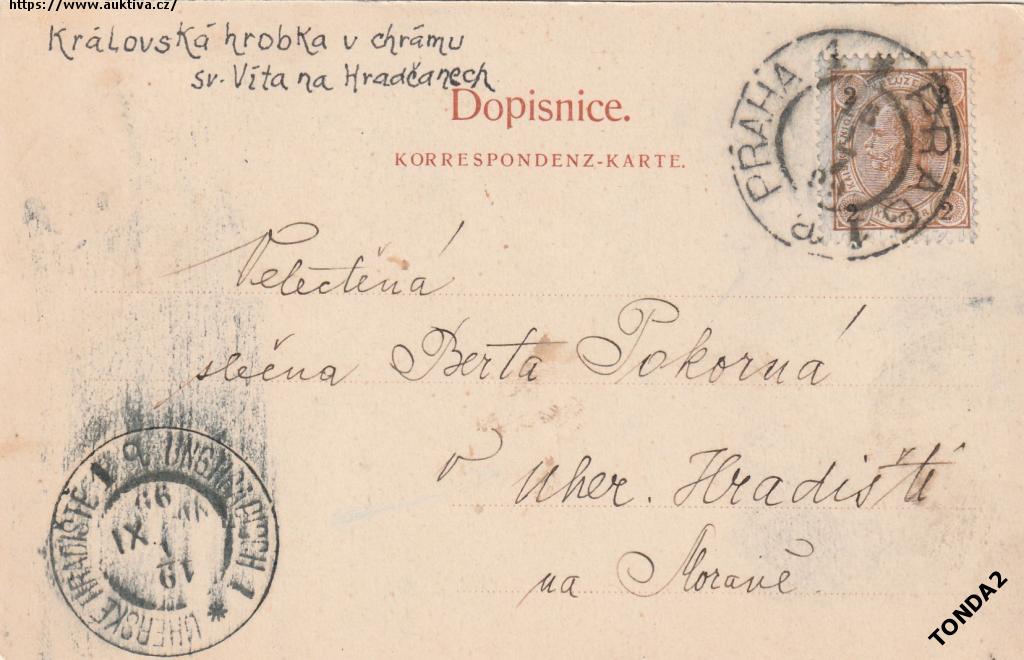 https://www.auktiva.cz/
Královská hrobka v chrámu
sv. Víta na Hradčanech
Dopisnice.
KORRESPONDENZ-KARTE.
PRAHA 1 * PRAG 1
2 2
2 2
Velectěná
slečna Berta Pokorná
v Uher. Hradišti
na Moravě
UHERSKÉ HRADIŠTĚ 1 UNG. HRADISCH 1 *
TONDA2